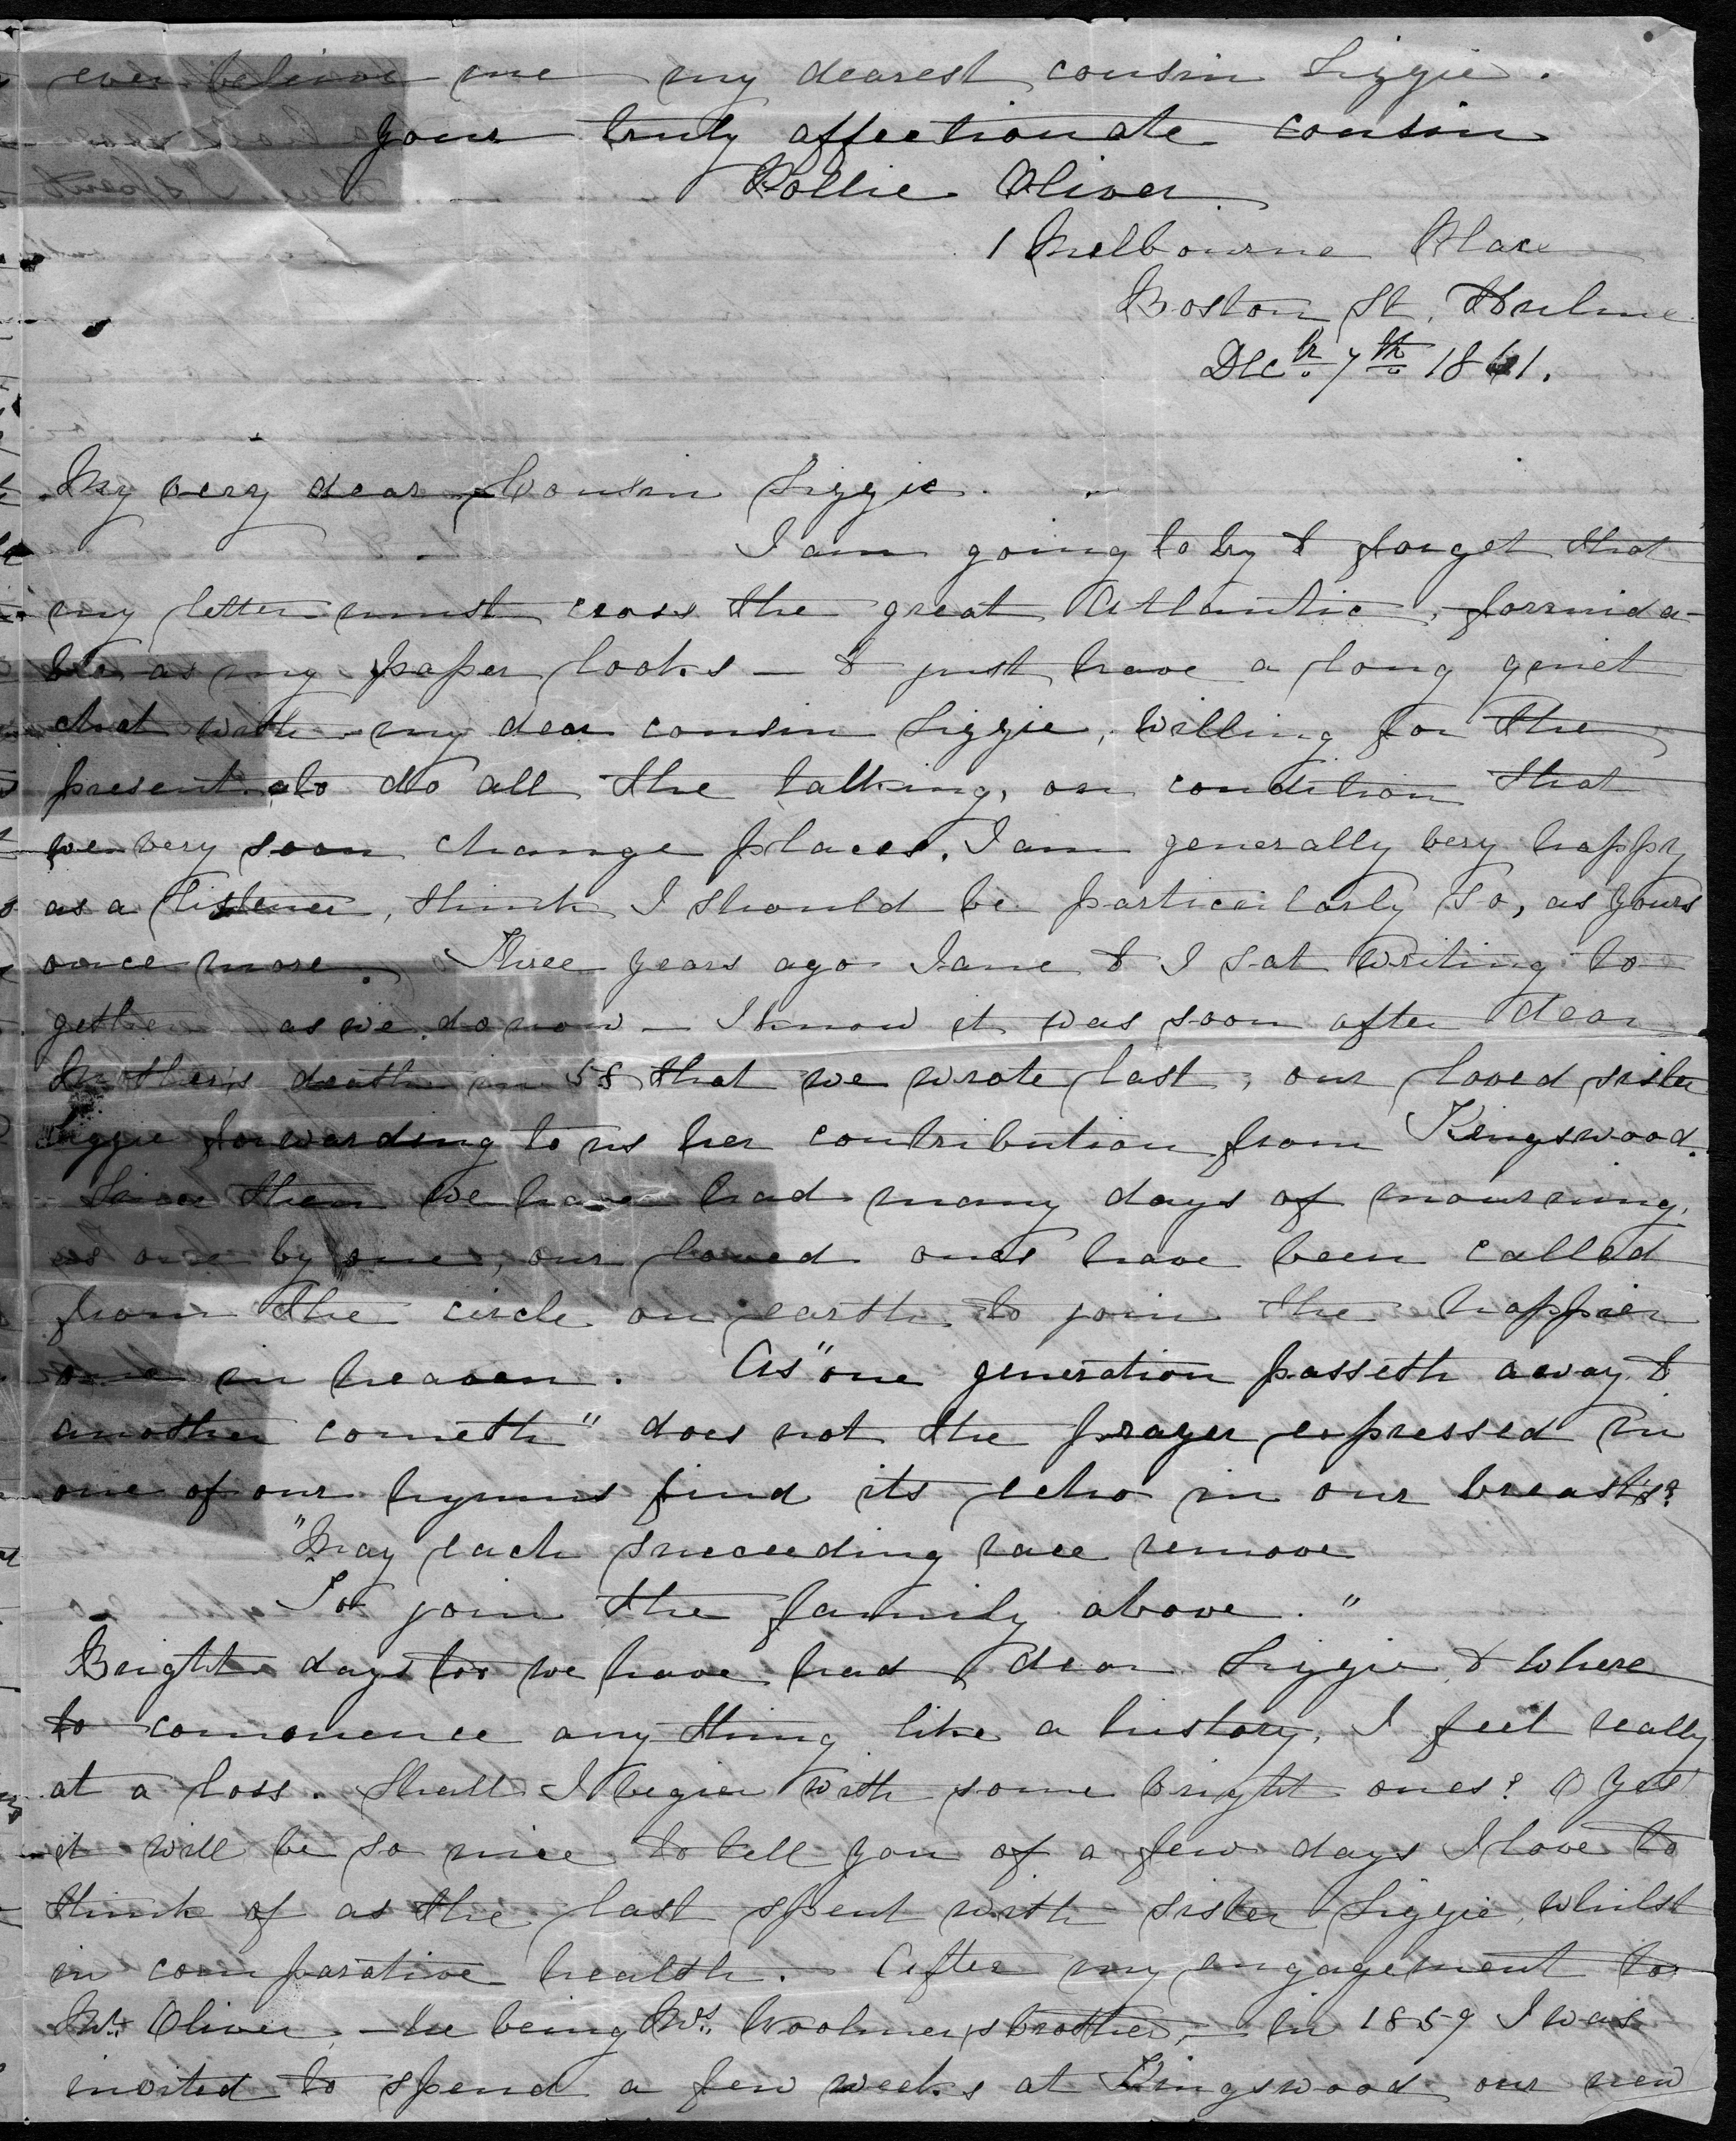 ever believe me my dearest cousin Lizzie.
your truly affectionate cousin
Pollie Oliver
1 Melbourne Place
Boston St. Hulme
Decr. 7th 1861.
My very dear Cousin Lizzie.
I am going to try & forget that
my letter must cross the great Atlantic, formida-
ble as my paper looks — & just have a long quiet
chat with my dear cousin Lizzie, willing for the
present to do all the talking, on condition that
we very soon change places. I am generally very happy
as a listener, think I should be particularly so, as yours
once more. Three years ago Jane & I sat writing to-
gether as we do now — I know it was soon after dear
Mother's death in 58 that we wrote last, our loved sister
Lizzie forwarding to us her contribution from Kingswood.
Since then we have had many days of mourning,
as one by one, our loved ones have been called
from the circle on earth to join the happier
one in heaven. As "one generation passeth away &
another cometh" does not the prayer expressed in
one of our hymns find its echo in our breasts?
"May each succeeding race remove
To join the family above."
Bright days too we have had dear Lizzie & where
to commence any thing like a history, I feel really
at a loss. Shall I begin with some bright ones? O yes
it will be so nice to tell you of a few days I love to
think of as the last spent with sister Lizzie, whilst
in comparative health. After my engagement to
Mr. Oliver, — he being Mrs. Woolmer's brother, — in 1859 I was
invited to spend a few weeks at Kingswood our new